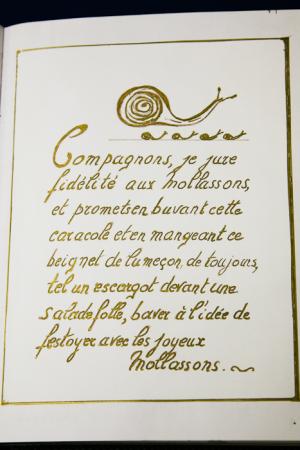 Compagnons, je jure
fidélité aux Mollassons,
et promets en buvant cette
caracole et en mangeant ce
beignet de lumeçon, de toujours,
tel un escargot devant une
salade folle, baver à l'idée de
festoyer avec les joyeux
Mollassons.